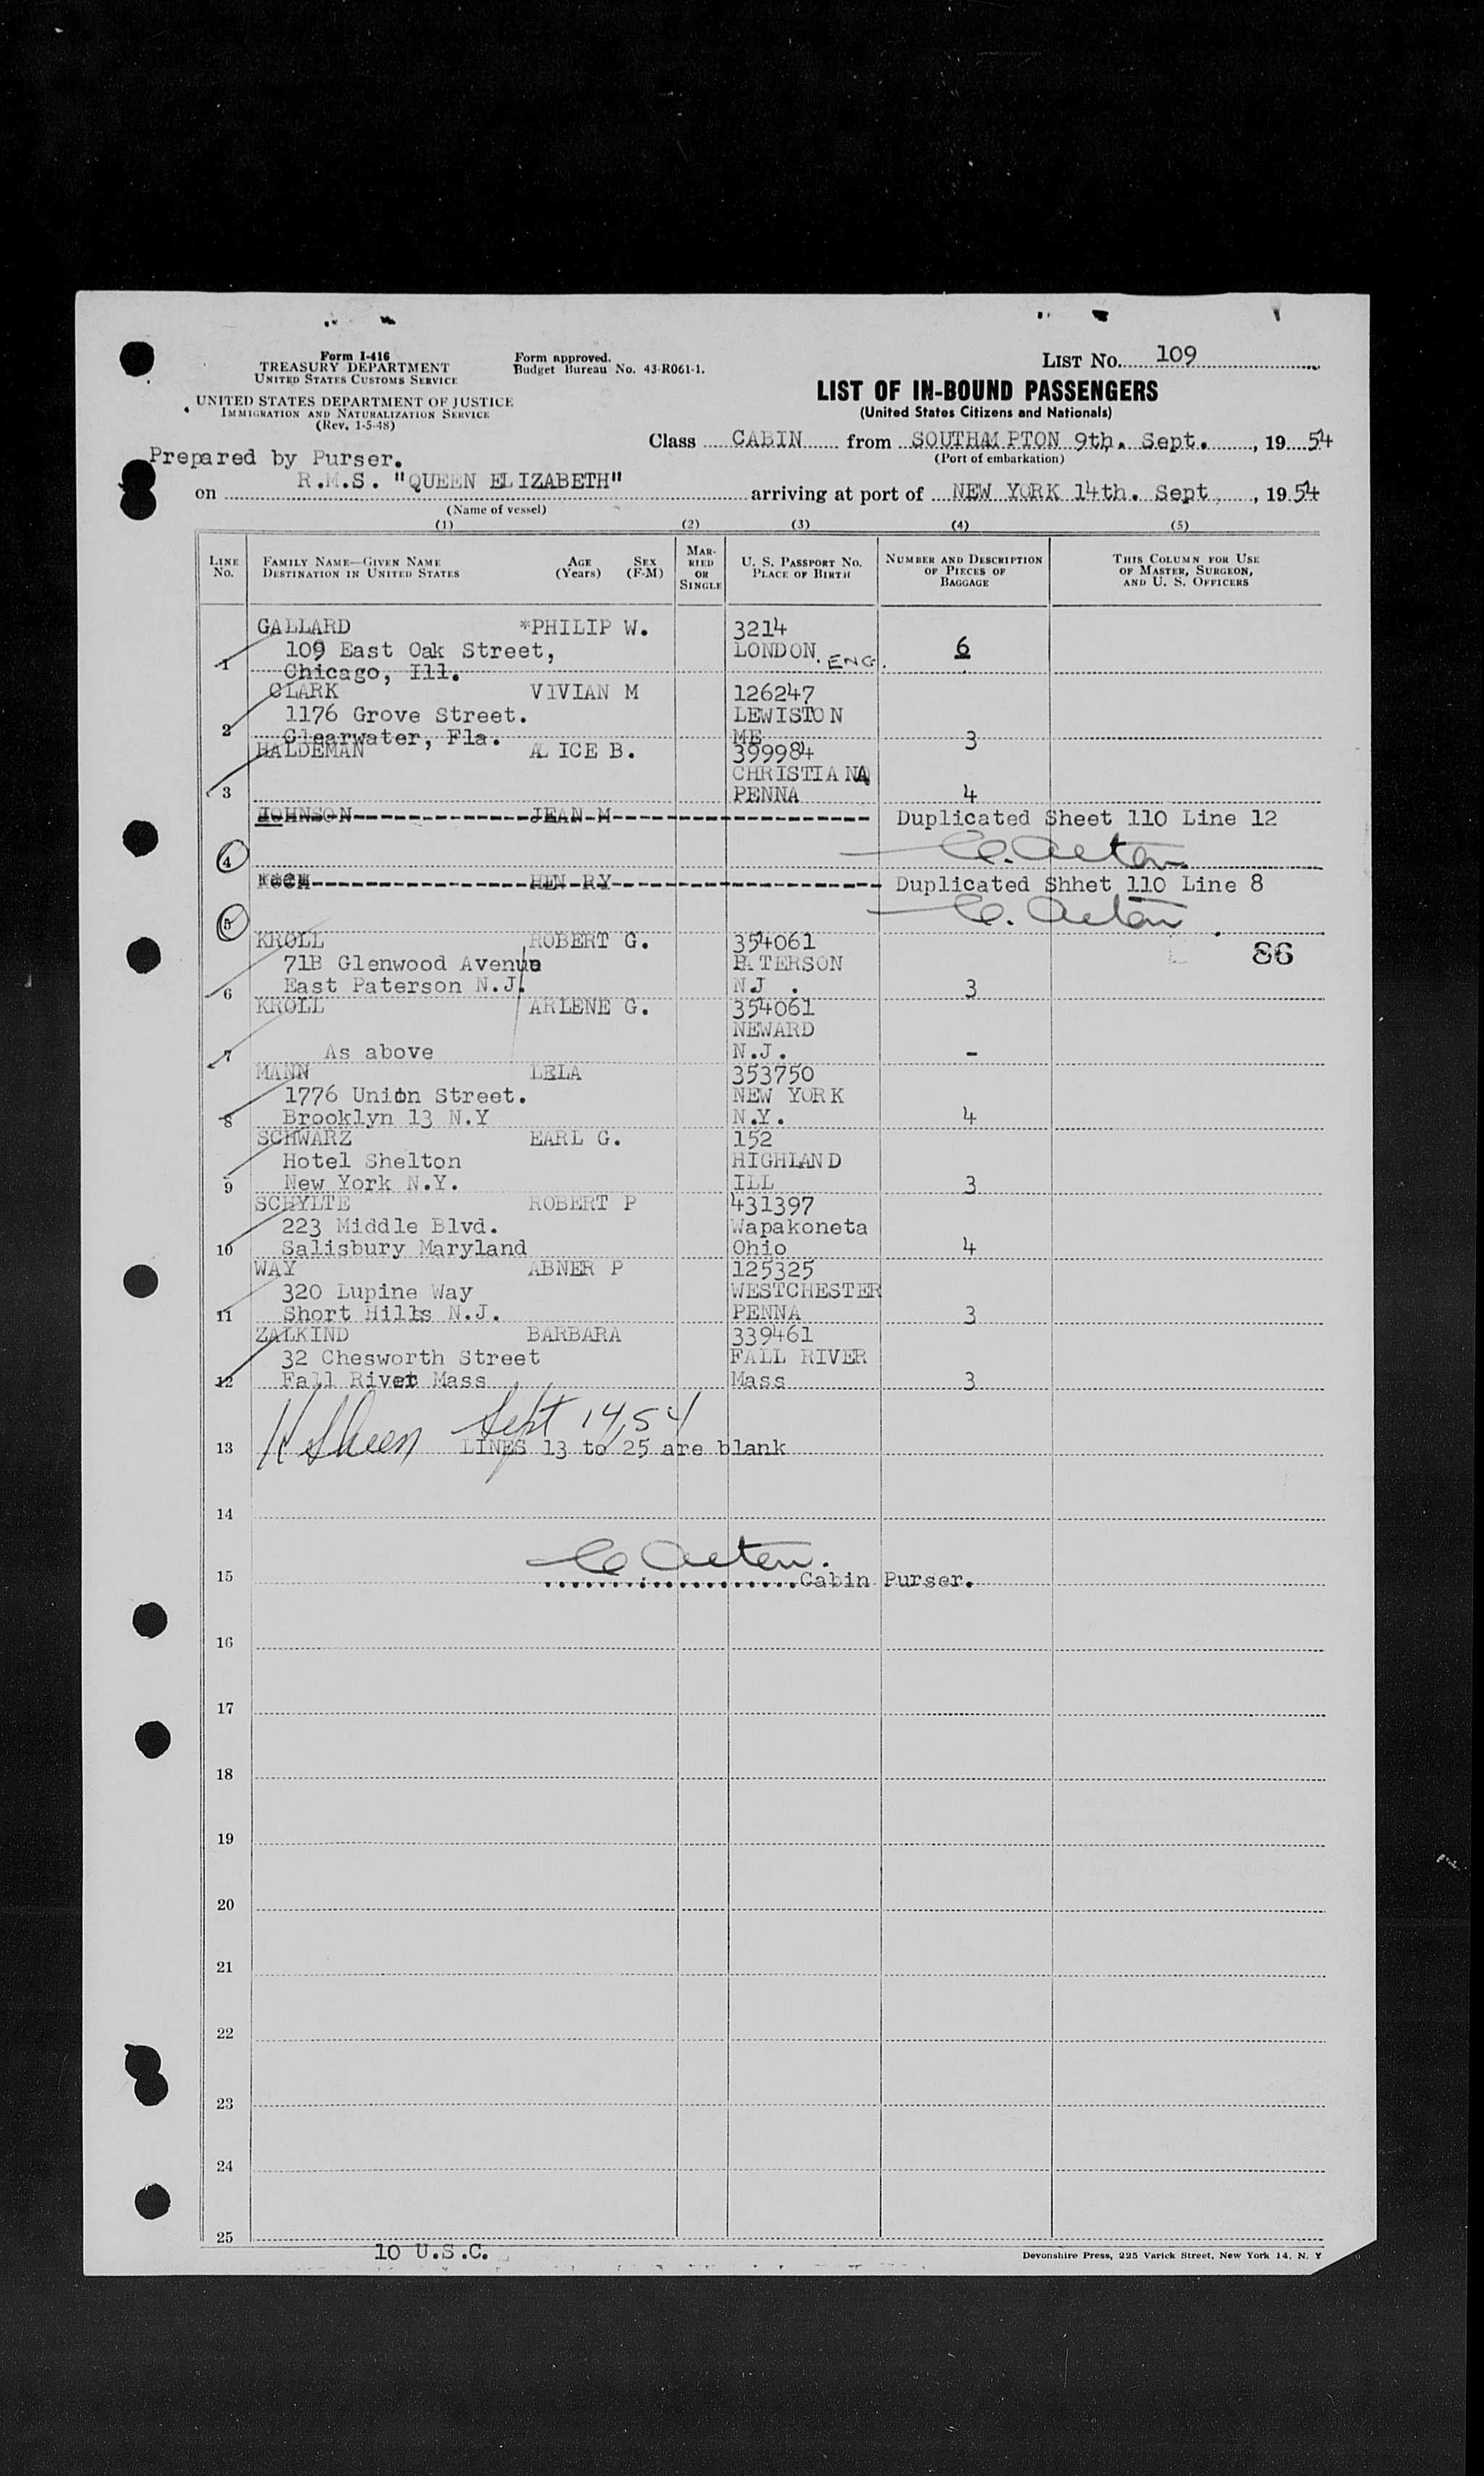 Form I-416
TREASURY DEPARTMENT
UNITED STATES CUSTOMS SERVICE
UNITED STATES DEPARTMENT OF JUSTICE
IMMIGRATION AND NATURALIZATION SERVICE
(Rev. 1-5-48)
Form approved.
Budget Bureau No. 43-R061-1.
LIST NO. 109
LIST OF IN-BOUND PASSENGERS
(United States Citizens and Nationals)
Class CABIN from SOUTHAMPTON 9th. Sept. , 19 54
(Port of embarkation)
Prepared by Purser.
on R.M.S. "QUEEN ELIZABETH" arriving at port of NEW YORK 14th. Sept , 19 54
(Name of vessel)
(1) (2) (3) (4) (5)
LINE NO. FAMILY NAME—GIVEN NAME DESTINATION IN UNITED STATES AGE (Years) SEX (F-M) MARRIED OR SINGLE U. S. PASSPORT NO. PLACE OF BIRTH NUMBER AND DESCRIPTION OF PIECES OF BAGGAGE THIS COLUMN FOR USE OF MASTER, SURGEON, AND U. S. OFFICERS
GALLARD *PHILIP W. 3214
109 East Oak Street, LONDON. ENG. 6
1 Chicago, Ill.
CLARK VIVIAN M 126247
1176 Grove Street. LEWISTON
2 Clearwater, Fla. ME 3
HALDEMAN ALICE B. 399984
CHRISTIANA
3 PENNA 4
JOHNSON JEAN M Duplicated Sheet 110 Line 12
4 C. Acton
KOCH HENRY Duplicated Shhet 110 Line 8
5 C. Acton
KROLL ROBERT G. 354061 86
71B Glenwood Avenue PATERSON
6 East Paterson N.J. NJ . 3
KROLL ARLENE G. 354061
NEWARD
7 As above N.J. -
MANN LELA 353750
1776 Union Street. NEW YORK
8 Brooklyn 13 N.Y N.Y. 4
SCHWARZ EARL G. 152
Hotel Shelton HIGHLAND
9 New York N.Y. ILL 3
SCHYLTE ROBERT P 431397
223 Middle Blvd. Wapakoneta
10 Salisbury Maryland Ohio 4
WAY ABNER P 125325
320 Lupine Way WESTCHESTER
11 Short Hills N.J. PENNA 3
ZALKIND BARBARA 339461
32 Chesworth Street FALL RIVER
12 Fall River Mass Mass 3
K Sheen Sept 14, 54
13 LINES 13 to 25 are blank
14
C Acton.
15 Cabin Purser.
16
17
18
19
20
21
22
23
24
25
10 U.S.C.
Devonshire Press, 225 Varick Street, New York 14, N. Y